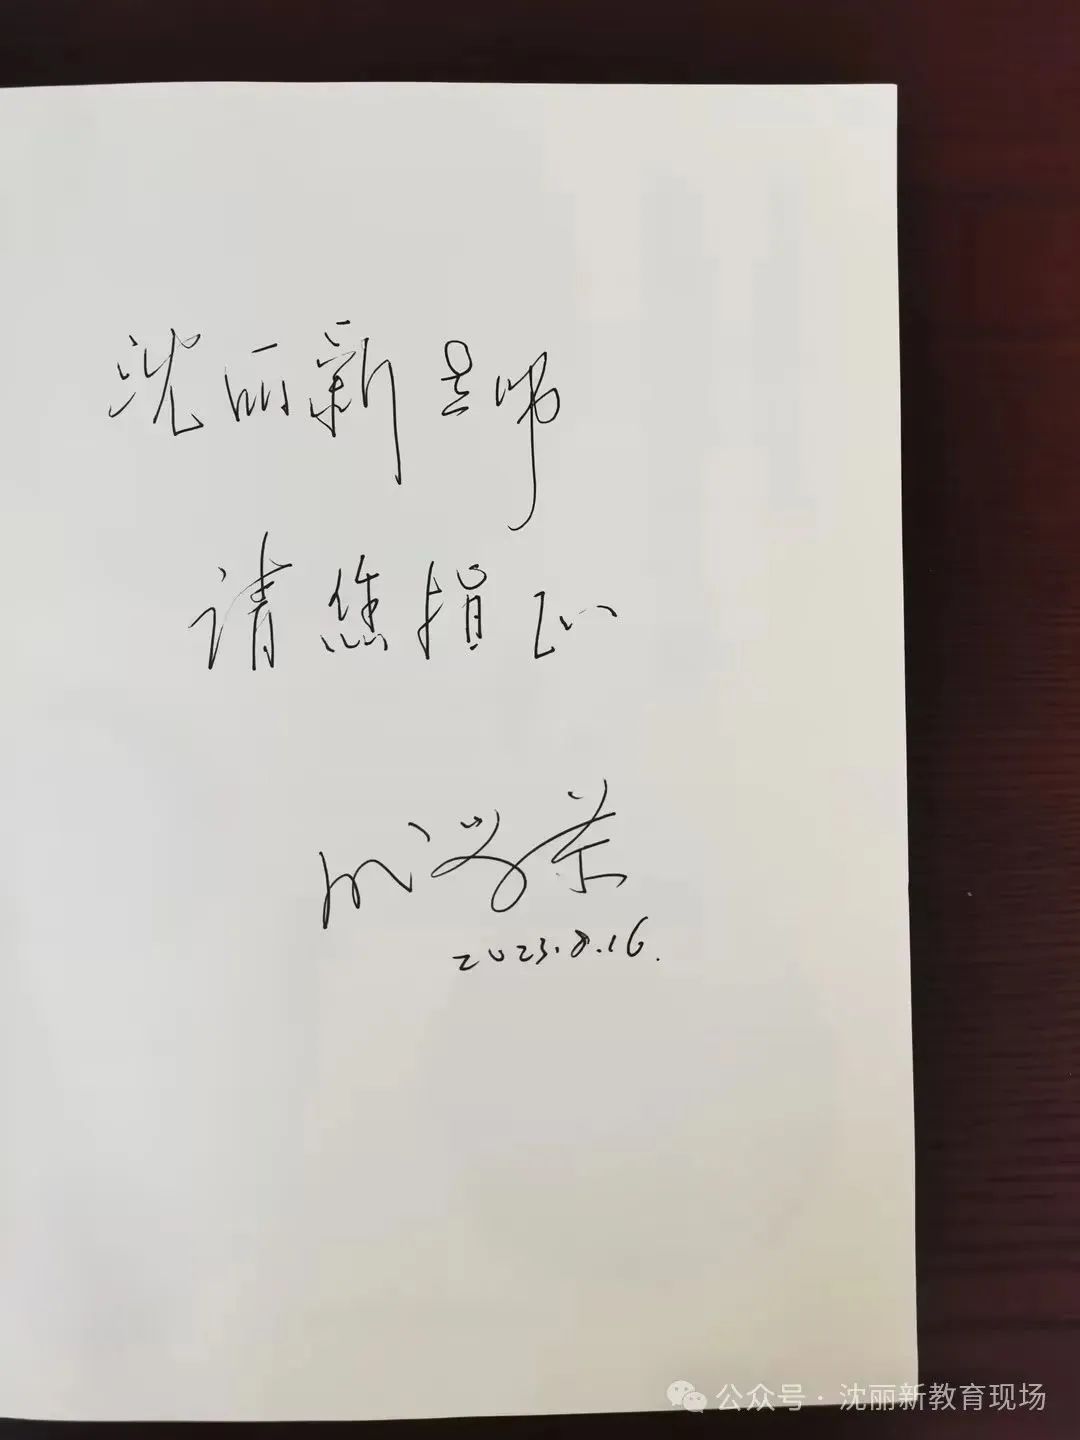 沈丽新老师
请您指正
2023.8.16.
公众号·沈丽新教育现场